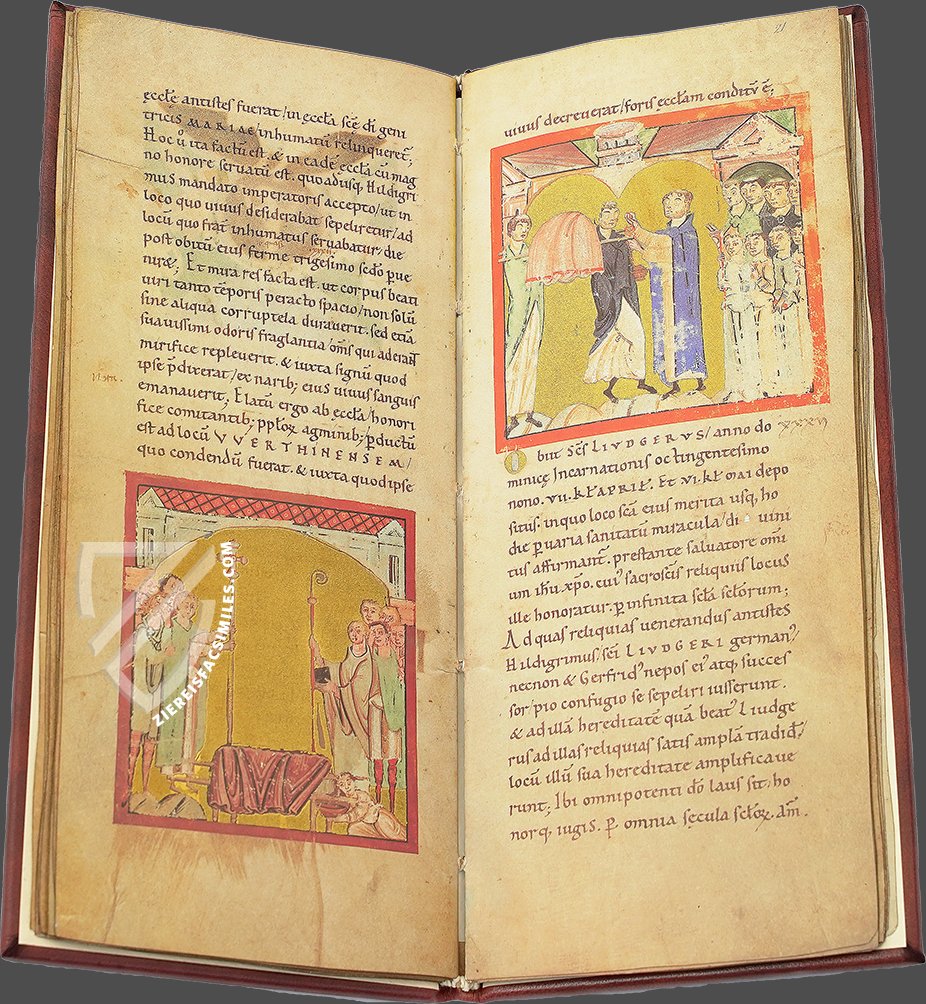 ęccłe antistes fuerat / in ęccła scē di geni
tricis MARIAE / inhumatū relinqueret;
Hoc ů ita factū est. & in eadē ęccła cū mag
no honore seruatū est. quo adusq; Hildigri
mus mandato imperatoris accepto / ut in
loco quo uiuus desiderabat sepeliretur / ad
locū quo frat inhumatus seruabatur / die
post obitū eius ferme trigesimo scdo p̄ ue
Et mira res facta est. ut corpus beati
uiri tanto tēporis peracto spacio / non solū
sine aliqua corruptela durauerit. sed etiā
suauissimi odoris fraglantia / om̄s qui aderant
mirifice repleuerit. & iuxta signū quod
ipse p̄dixerat / ex narib; eius uiuus sanguis
emanauerit; Elatū ergo ab ęccła / honori
fice comitantib; ppłoꝝ agminib; p̄ductū
est ad locū VVERTHINENSEM /
quo condendū fuerat. & iuxta quod ipse
ZIEREISFACSIMILES.COM
21
uiuus decreuerat / foris ęccłam conditū ē;
Obiit Scs LIVDGERVS / anno do
xxxvi
minicę Incarnationis octingentesimo
nono. vii. kł APRIŁ. Et vi. kł mai depo
situs. in quo loco scā eius merita usq; ho
die p̄ uaria sanitatū miracula / di uini
tus affirmant. prestante saluatore om̄i
um ihu xpo. cui' sacroscis reliquiis locus
ille honoratur. p̄ infinita scła scłorum;
Ad quas reliquias uenerandus antistes
Hildigrimus / scī LIVDGERI german'
necnon & Gerfrid' nepos ei' atq; succes
sor / pio confugio se sepeliri iusserunt.
& ad illā hereditatē quā beat' Liudge
rus ad illas reliquias satis amplā tradid /
locū illū sua hereditate amplificaue
runt; Ibi omnipotenti do laus sit. ho
norq; iugis. p̄ omnia sęcula scłoꝝ. am̄.